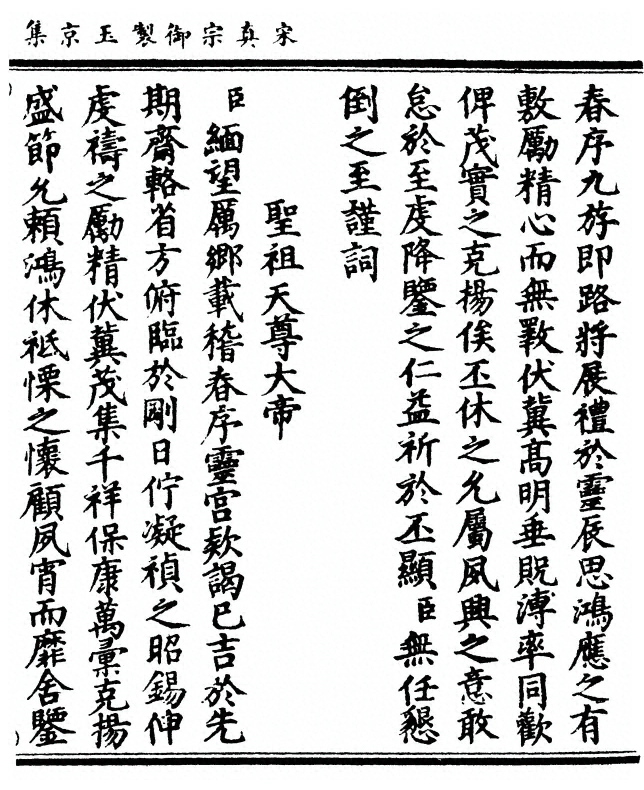 宋真宗御製玉京集
春序九斿即路將展禮於靈辰思鴻應之有
敷勵精心而無斁伏冀髙明垂貺溥率同歡
俾茂實之克揚俟丕休之允屬夙興之意敢
怠於至虔降鑒之仁益祈於丕顯臣無任懇
倒之至謹詞
聖祖天尊大帝
臣緬望厲鄉載稽春序靈宫欵謁已吉於先
期齋輅省方俯臨於剛日佇凝禎之昭錫伸
虔禱之勵精伏冀茂集千祥保康萬彙克揚
盛節允頼鴻休祗慄之懷顧夙宵而靡舍鑒